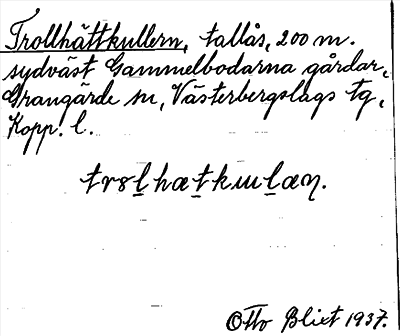 Trollhättkullern, tallås, 200 m.
sydväst Gammelbodarna gårdar,
Grangärde sn, Västerbergslags tg,
Kopp. l.
Otto Blixt 1937.